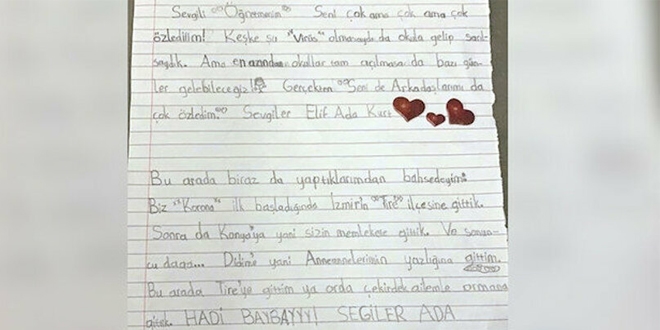 Sevgili "Öğretmenim" Seni çok ama çok ama çok
özledilim! Keşke şu "Virüs" olmasaydı da okula gelip sarıl-
saydık. Ama en azından okullar tam açılmasa da bazı gün-
ler gelebileceğiz! Gerçekten Seni de Arkadaşlarımı da
çok özledim. Sevgiler Elif Ada Kurt
Bu arada biraz da yaptıklarımdan bahsedeyim.
Biz "Korona" ilk başladığında İzmir'in "Tire" ilçesine gittik.
Sonra da Konya'ya yani sizin memlekete gittik. Ve sonun-
cu daga... Didim'e yani Annemnelerimin yazlığına gittim.
Bu arada Tire'ye gittim ya orda çekirdek ailemle ormana
gitek. HADİ BAYBAYYY! SEGİLER ADA